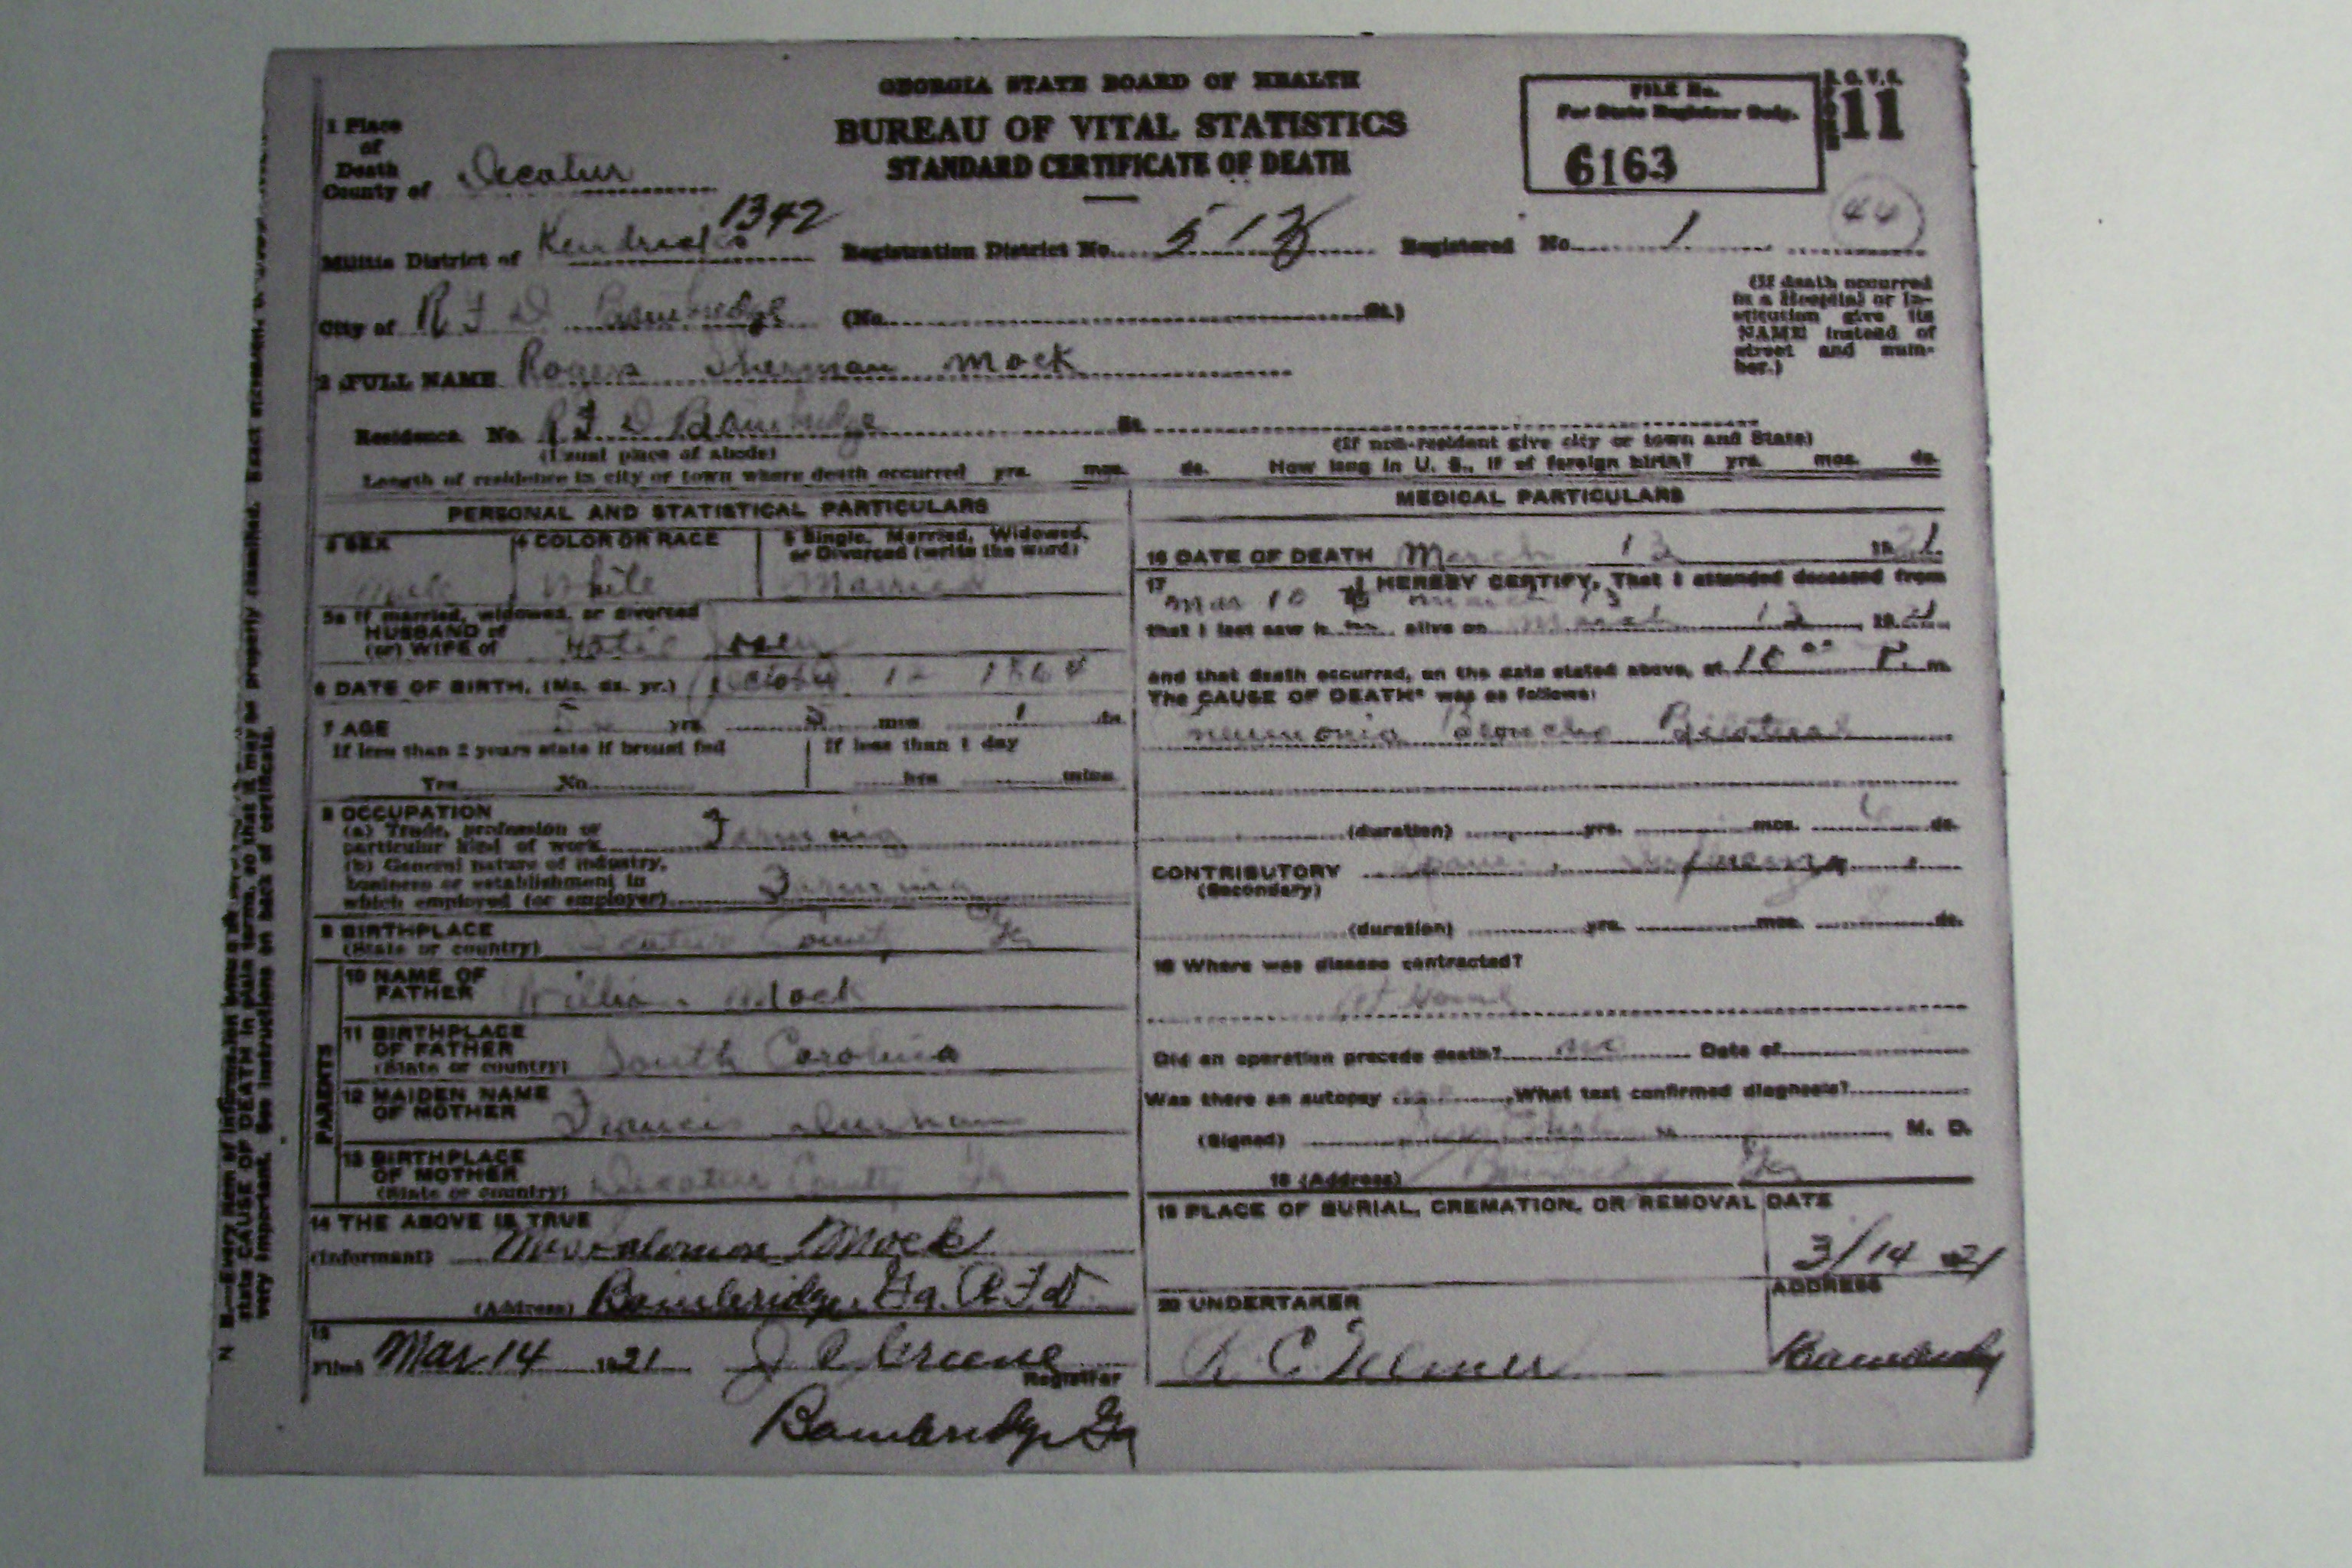 GEORGIA STATE BOARD OF HEALTH
BUREAU OF VITAL STATISTICS
STANDARD CERTIFICATE OF DEATH
FILE No.
For State Registrar Only.
6163
11
44
1 Place
of
Death
County of Decatur
Militia District of Kendricks 1342 Registration District No. 513 Registered No. 1
City of R F D Bainbridge (No. St.)
(If death occurred
in a Hospital or In-
stitution give its
NAME instead of
street and num-
ber.)
2 FULL NAME Rogers Sherman Mock
Residence. No. R F D Bainbridge St.
(Usual place of abode)
(If non-resident give city or town and State)
Length of residence in city or town where death occurred yrs. mos. ds. How long in U. S., if of foreign birth? yrs. mos. ds.
PERSONAL AND STATISTICAL PARTICULARS
3 SEX
Male
4 COLOR OR RACE
White
5 Single, Married, Widowed,
or Divorced (write the word)
Married
5a If married, widowed, or divorced
HUSBAND of
(or) WIFE of
6 DATE OF BIRTH. (Mo. da. yr.) October 12 1864
7 AGE yrs. 5 mos. 1 ds.
If less than 2 years state if breast fed
Yes No
If less than 1 day
hrs. mins.
8 OCCUPATION
(a) Trade, profession or
particular kind of work Farming
(b) General nature of industry,
business or establishment in
which employed (or employer) Farming
9 BIRTHPLACE
(State or country) Decatur County Ga
PARENTS
10 NAME OF
FATHER William Mock
11 BIRTHPLACE
OF FATHER
(State or country) South Carolina
12 MAIDEN NAME
OF MOTHER Francis
13 BIRTHPLACE
OF MOTHER
(State or country) Decatur County Ga
14 THE ABOVE IS TRUE
(Informant) Mock
(Address) Bainbridge, Ga. R F D
15
Filed Mar 14 1921 Greene
Registrar
Bainbridge Ga
MEDICAL PARTICULARS
16 DATE OF DEATH March 13 1921
17 I HEREBY CERTIFY, That I attended deceased from
Mar 10 to March 13
that I last saw h im alive on March 13, 1921
and that death occurred, on the date stated above, at 10 00 P. m.
The CAUSE OF DEATH* was as follows:
Pneumonia Broncho Bilateral
(duration) yrs. mos. 6 ds.
CONTRIBUTORY Influenza
(Secondary)
(duration) yrs. mos. ds.
18 Where was disease contracted?
At Home
Did an operation precede death? no Date of
Was there an autopsy no What test confirmed diagnosis?
(Signed) M. D.
18 (Address) Bainbridge Ga
19 PLACE OF BURIAL, CREMATION, OR REMOVAL DATE
3/14 21
20 UNDERTAKER
ADDRESS
Bainbridge
state CAUSE OF DEATH in plain terms, so that it may be properly classified.
very important. See instructions on back of certificate.